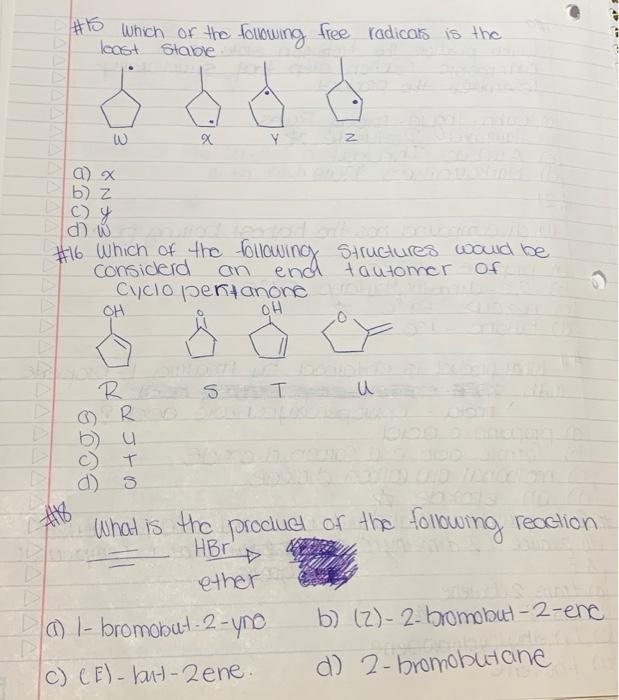 #15 Which of the following free radicals is the
least stable
W X Y Z
a) x
b) z
c) y
d) W
#16 Which of the following structures would be
considerd an enol tautomer of
cyclo pentanone
OH O OH O
R S T U
a) R
b) U
c) T
d) S
#18
What is the product of the following reaction
HBr
ether
a) 1-bromobut-2-yne b) (Z)-2-bromobut-2-ene
c) (E)-but-2ene. d) 2-bromobutane